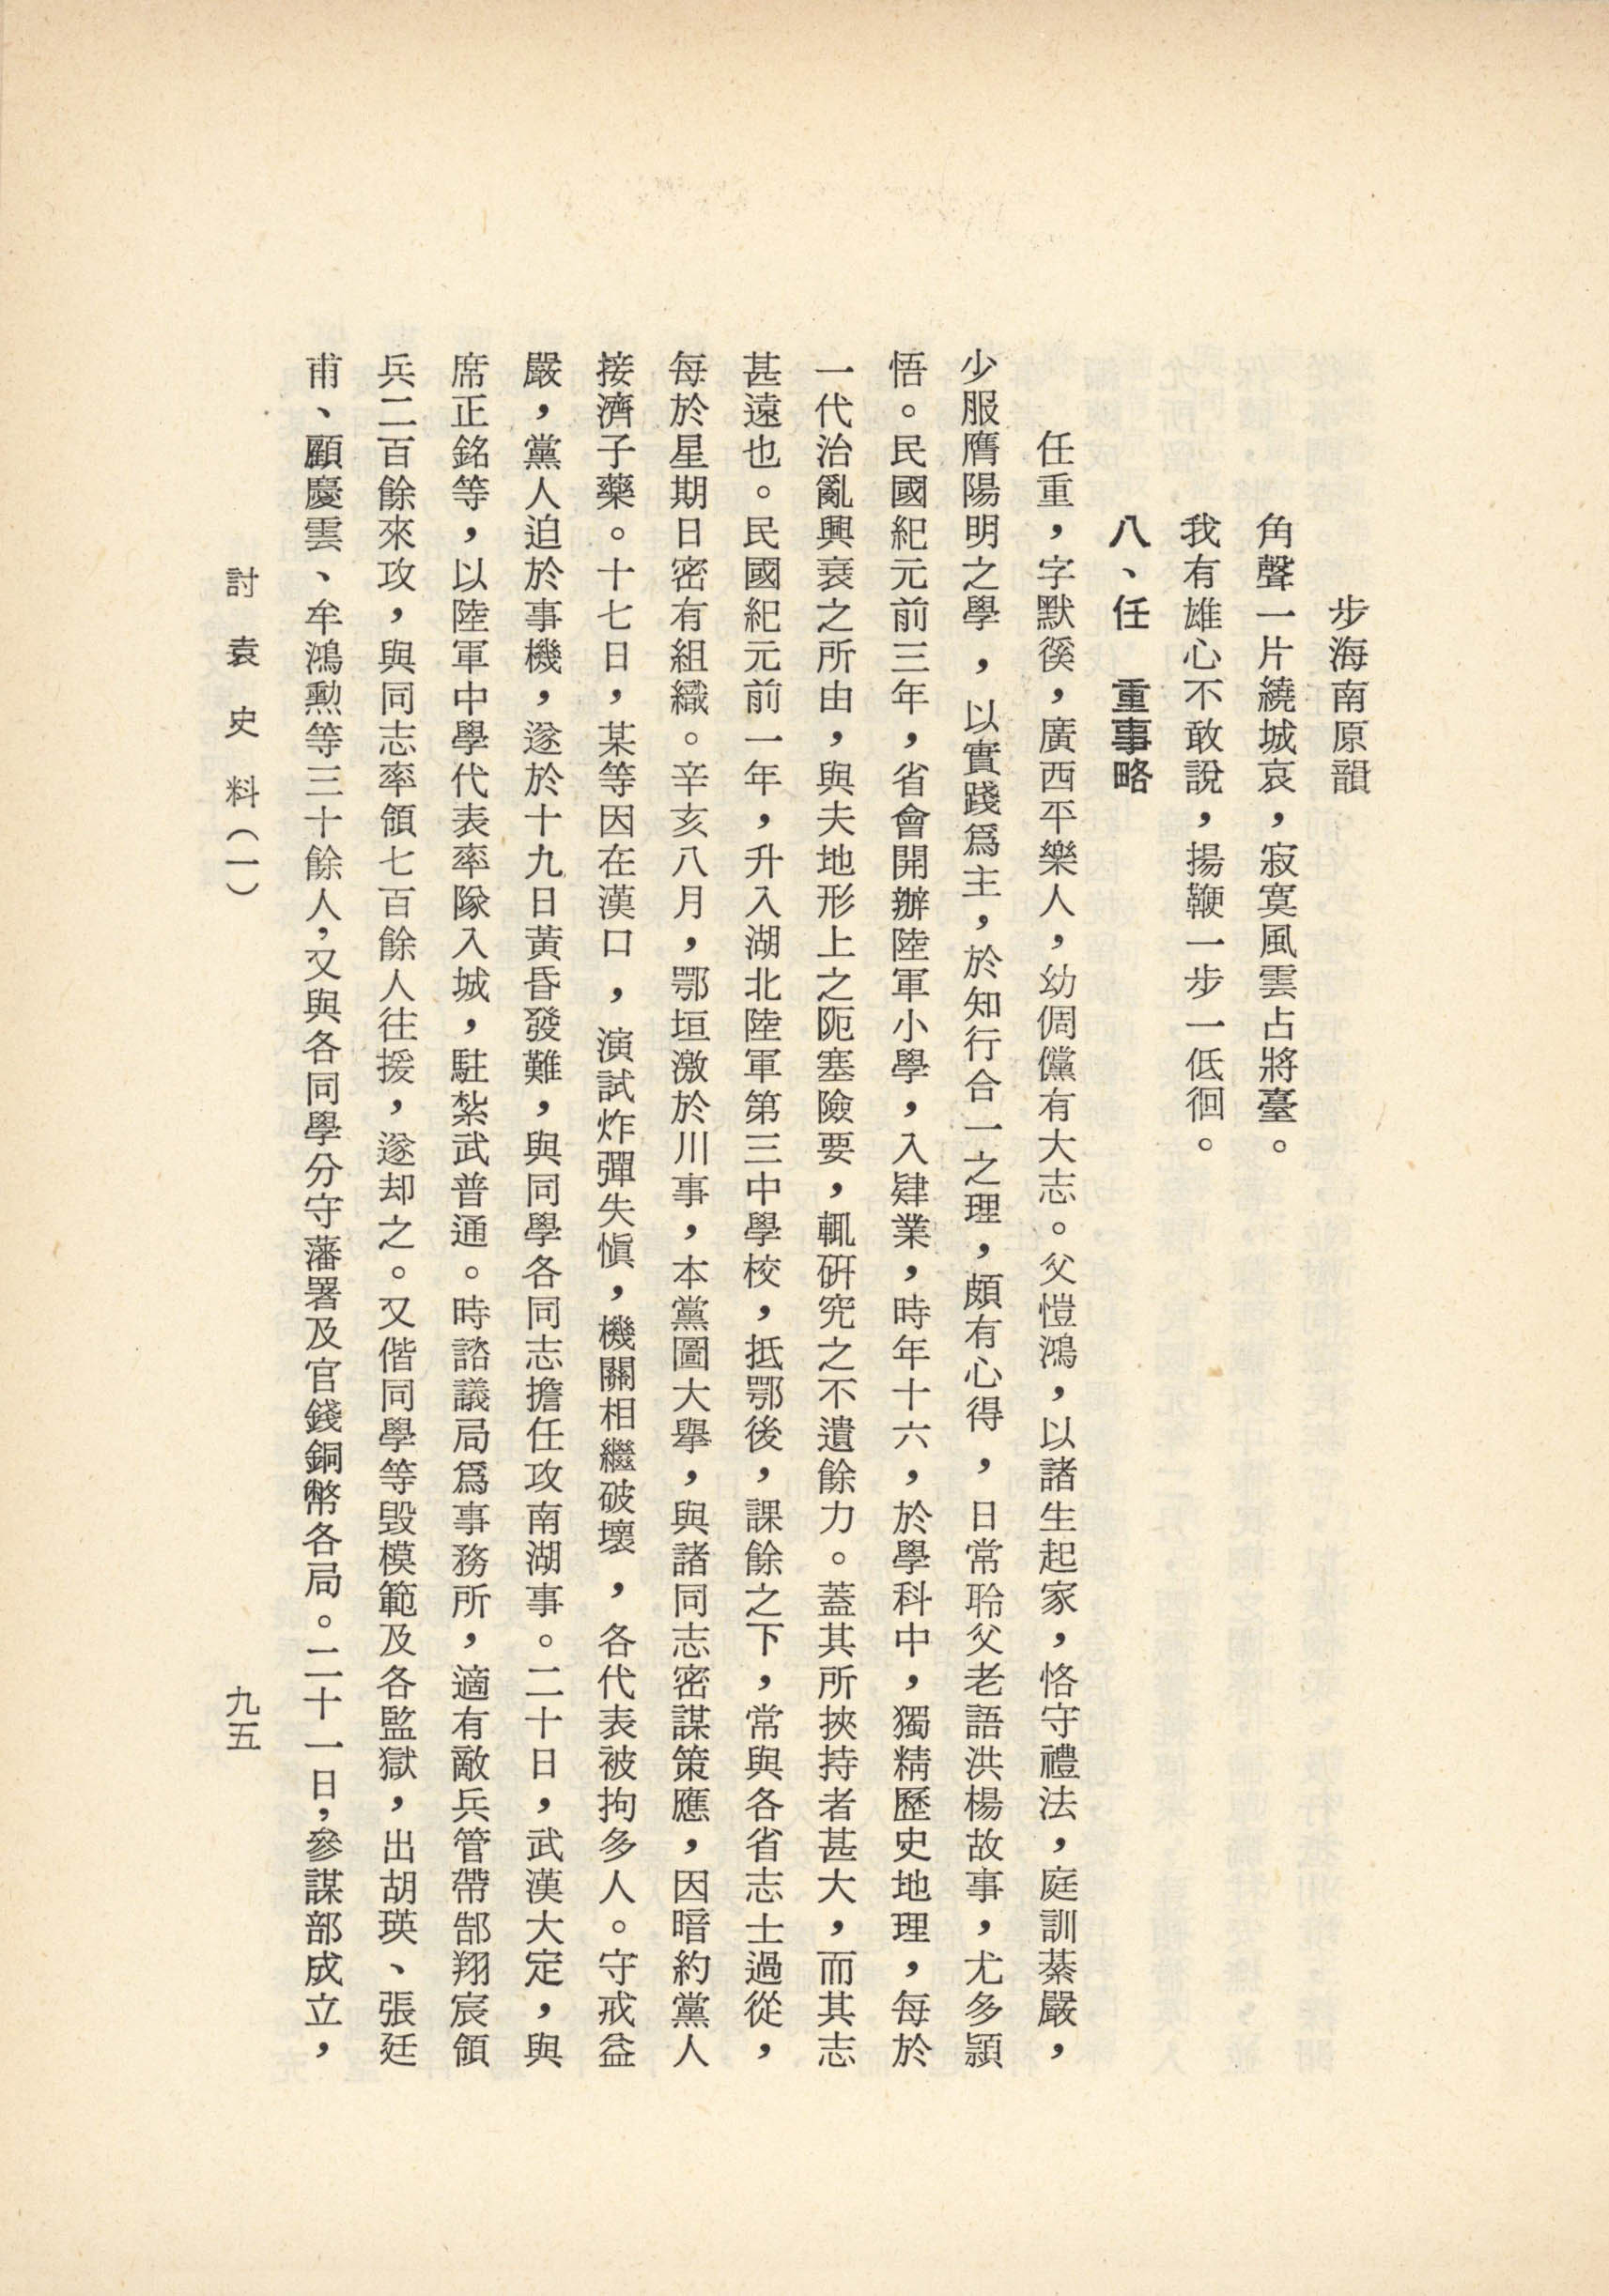 步海南原韻
角聲一片繞城哀，寂寞風雲占將臺。
我有雄心不敢說，揚鞭一步一低徊。
八、任　重事略
任重，字默徯，廣西平樂人，幼倜儻有大志。父愷鴻，以諸生起家，恪守禮法，庭訓綦嚴，
少服膺陽明之學，以實踐爲主，於知行合一之理，頗有心得，日常聆父老語洪楊故事，尤多穎
悟。民國紀元前三年，省會開辦陸軍小學，入肄業，時年十六，於學科中，獨精歷史地理，每於
一代治亂興衰之所由，與夫地形上之阨塞險要，輒研究之不遺餘力。蓋其所挾持者甚大，而其志
甚遠也。民國紀元前一年，升入湖北陸軍第三中學校，抵鄂後，課餘之下，常與各省志士過從，
每於星期日密有組織。辛亥八月，鄂垣激於川事，本黨圖大舉，與諸同志密謀策應，因暗約黨人
接濟子藥。十七日，某等因在漢口，演試炸彈失愼，機關相繼破壞，各代表被拘多人。守戒益
嚴，黨人迫於事機，遂於十九日黃昏發難，與同學各同志擔任攻南湖事。二十日，武漢大定，與
席正銘等，以陸軍中學代表率隊入城，駐紮武普通。時諮議局爲事務所，適有敵兵管帶郜翔宸領
兵二百餘來攻，與同志率領七百餘人往援，遂却之。又偕同學等毀模範及各監獄，出胡瑛、張廷
甫、顧慶雲、牟鴻勲等三十餘人，又與各同學分守藩署及官錢銅幣各局。二十一日，參謀部成立，
討袁史料（一）
九五